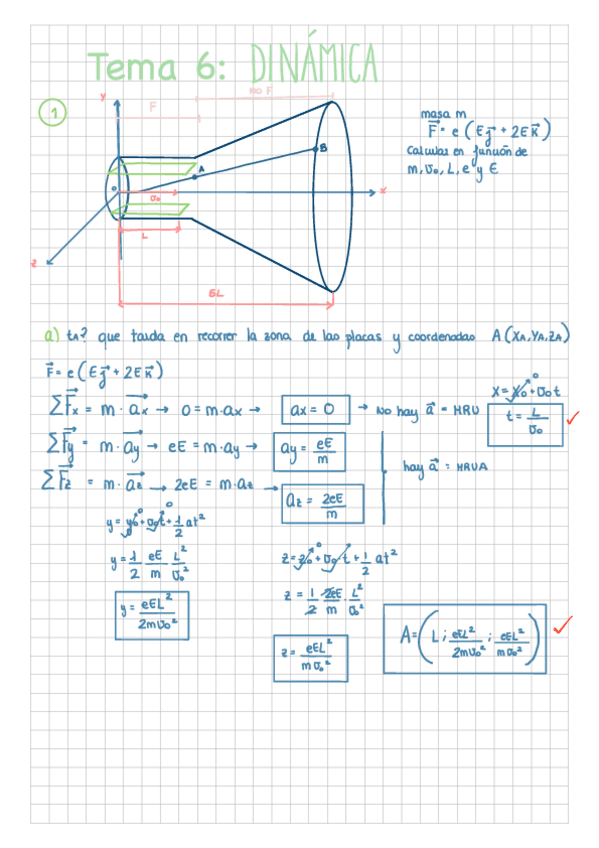 Tema 6: DINÁMICA
1
y
F
no F
A
B
o
v₀
x
L
z
6L
masa m
F⃗ = e (E j⃗ + 2E k⃗)
Calculas en función de
m, v₀, L, e y E
a) tA? que tarda en recorrer la zona de las placas y coordenadas A (XA, YA, ZA)
F⃗ = e (E j⃗ + 2E k⃗)
ΣF⃗x = m · a⃗x → 0 = m·ax → ax = 0 → No hay a⃗ = MRU
x = x₀ + v₀t
0
t = L/v₀ ✓
ΣF⃗y = m · a⃗y → eE = m·ay → ay = eE/m
hay a⃗ = MRUA
ΣF⃗z = m · a⃗z → 2eE = m·az → az = 2eE/m
y = y₀ + v₀t + 1/2 at²
0 0
y = 1/2 eE/m L²/v₀²
y = eEL²/2mv₀²
z = z₀ + v₀t + 1/2 at²
0 0
z = 1/2 2eE/m · L²/v₀²
z = eEL²/mv₀²
A = (L ; eEL²/2mv₀² ; eEL²/mv₀²) ✓